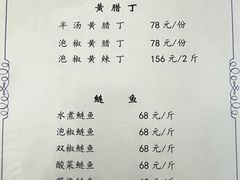 黄腊丁
半汤黄腊丁 78元/份
泡椒黄腊丁 78元/份
泡椒黄辣丁 156元/2斤
鲢鱼
水煮鲢鱼 68元/斤
泡椒鲢鱼 68元/斤
双椒鲢鱼 68元/斤
酸菜鲢鱼 68元/斤